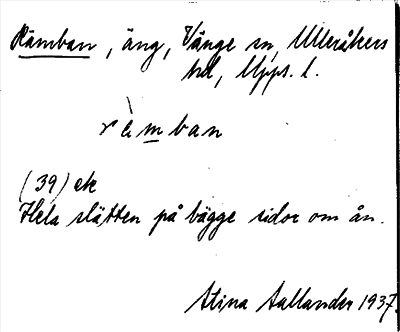 Rämban, äng, Vänge sn, Ulleråkers
hd, Upps. l.
rèmban
(39) etc
Hela slätten på bägge sidor om ån.
Stina Sallander 1937.